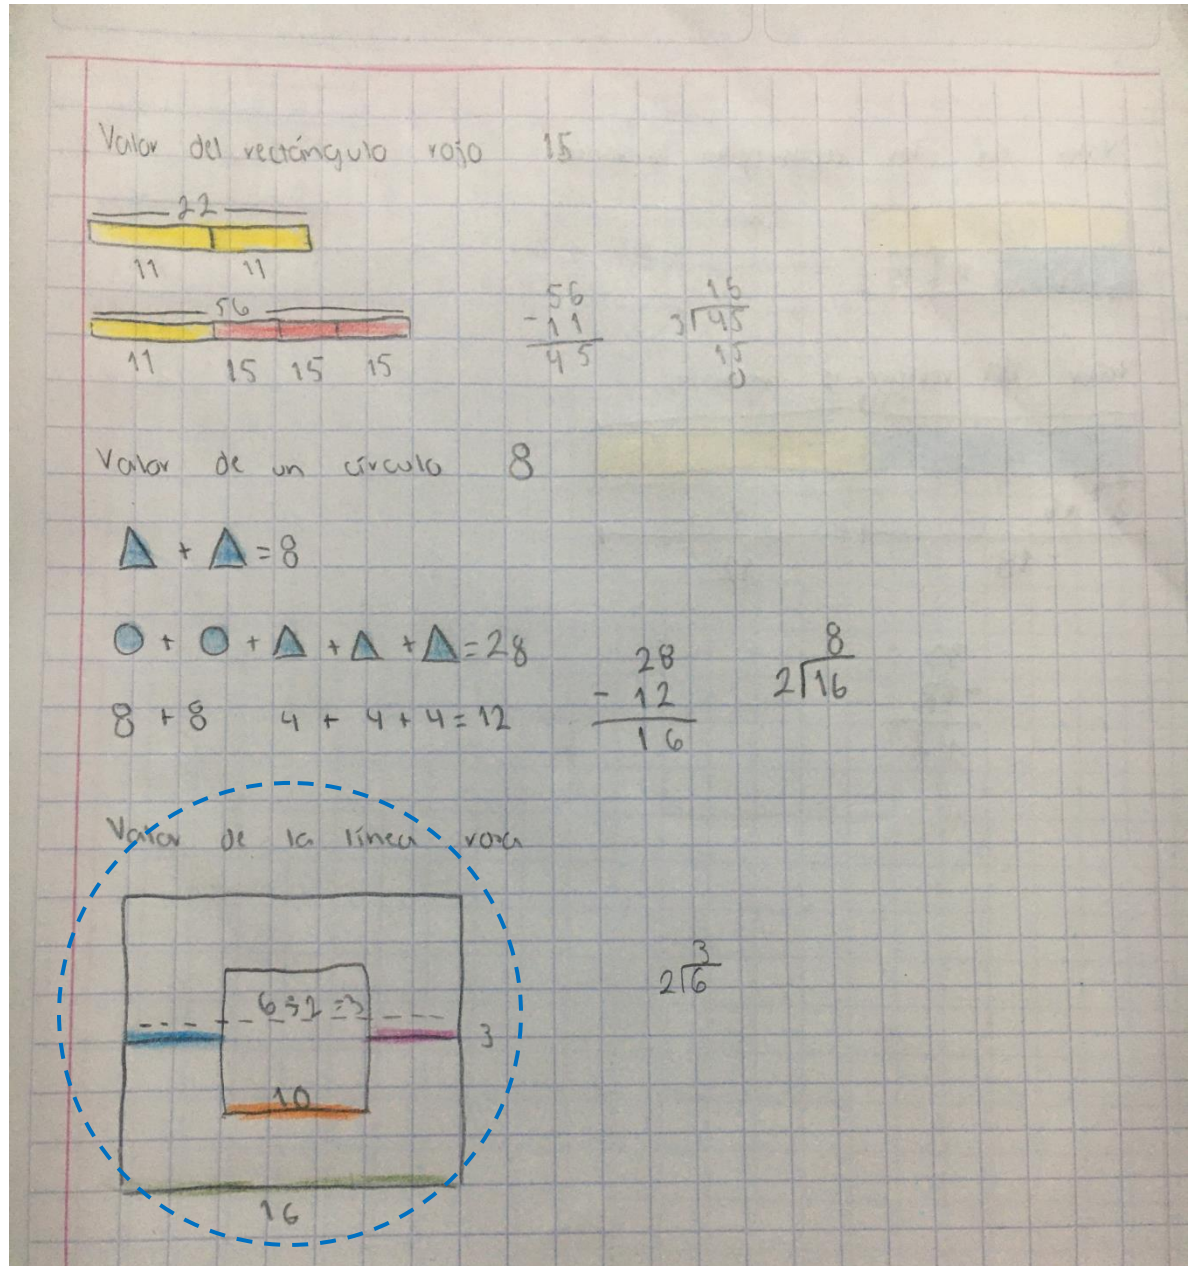 Valor del rectángulo rojo 15
22
11 11
56
11 15 15 15
56
- 11
45
15
3 45
15
0
Valor de un círculo 8
+ = 8
+ + + + = 28
8 + 8 4 + 4 + 4 = 12
28
- 12
16
8
2 16
Valor de la línea rosa
6÷2=3
3
10
16
3
2 6